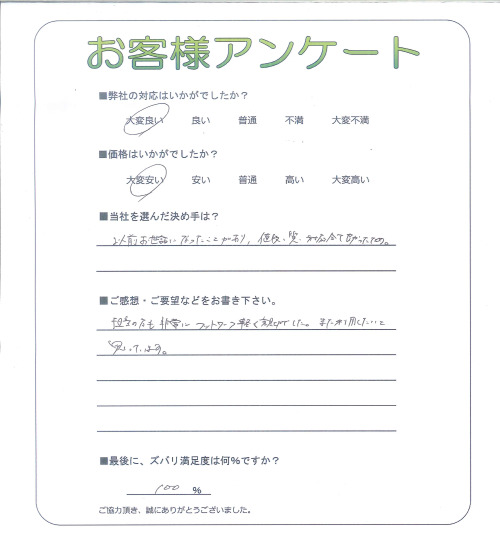 お客様アンケート
■弊社の対応はいかがでしたか？
大変良い 良い 普通 不満 大変不満
■価格はいかがでしたか？
大変安い 安い 普通 高い 大変高い
■当社を選んだ決め手は？
以前お世話になったことがあり、値段、 対応全て良かったので。
■ご感想・ご要望などをお書き下さい。
担当の方も非常にフットワーク軽く親切でした。また利用したいと
思っています。
■最後に、ズバリ満足度は何%ですか？
100 %
ご協力頂き、誠にありがとうございました。